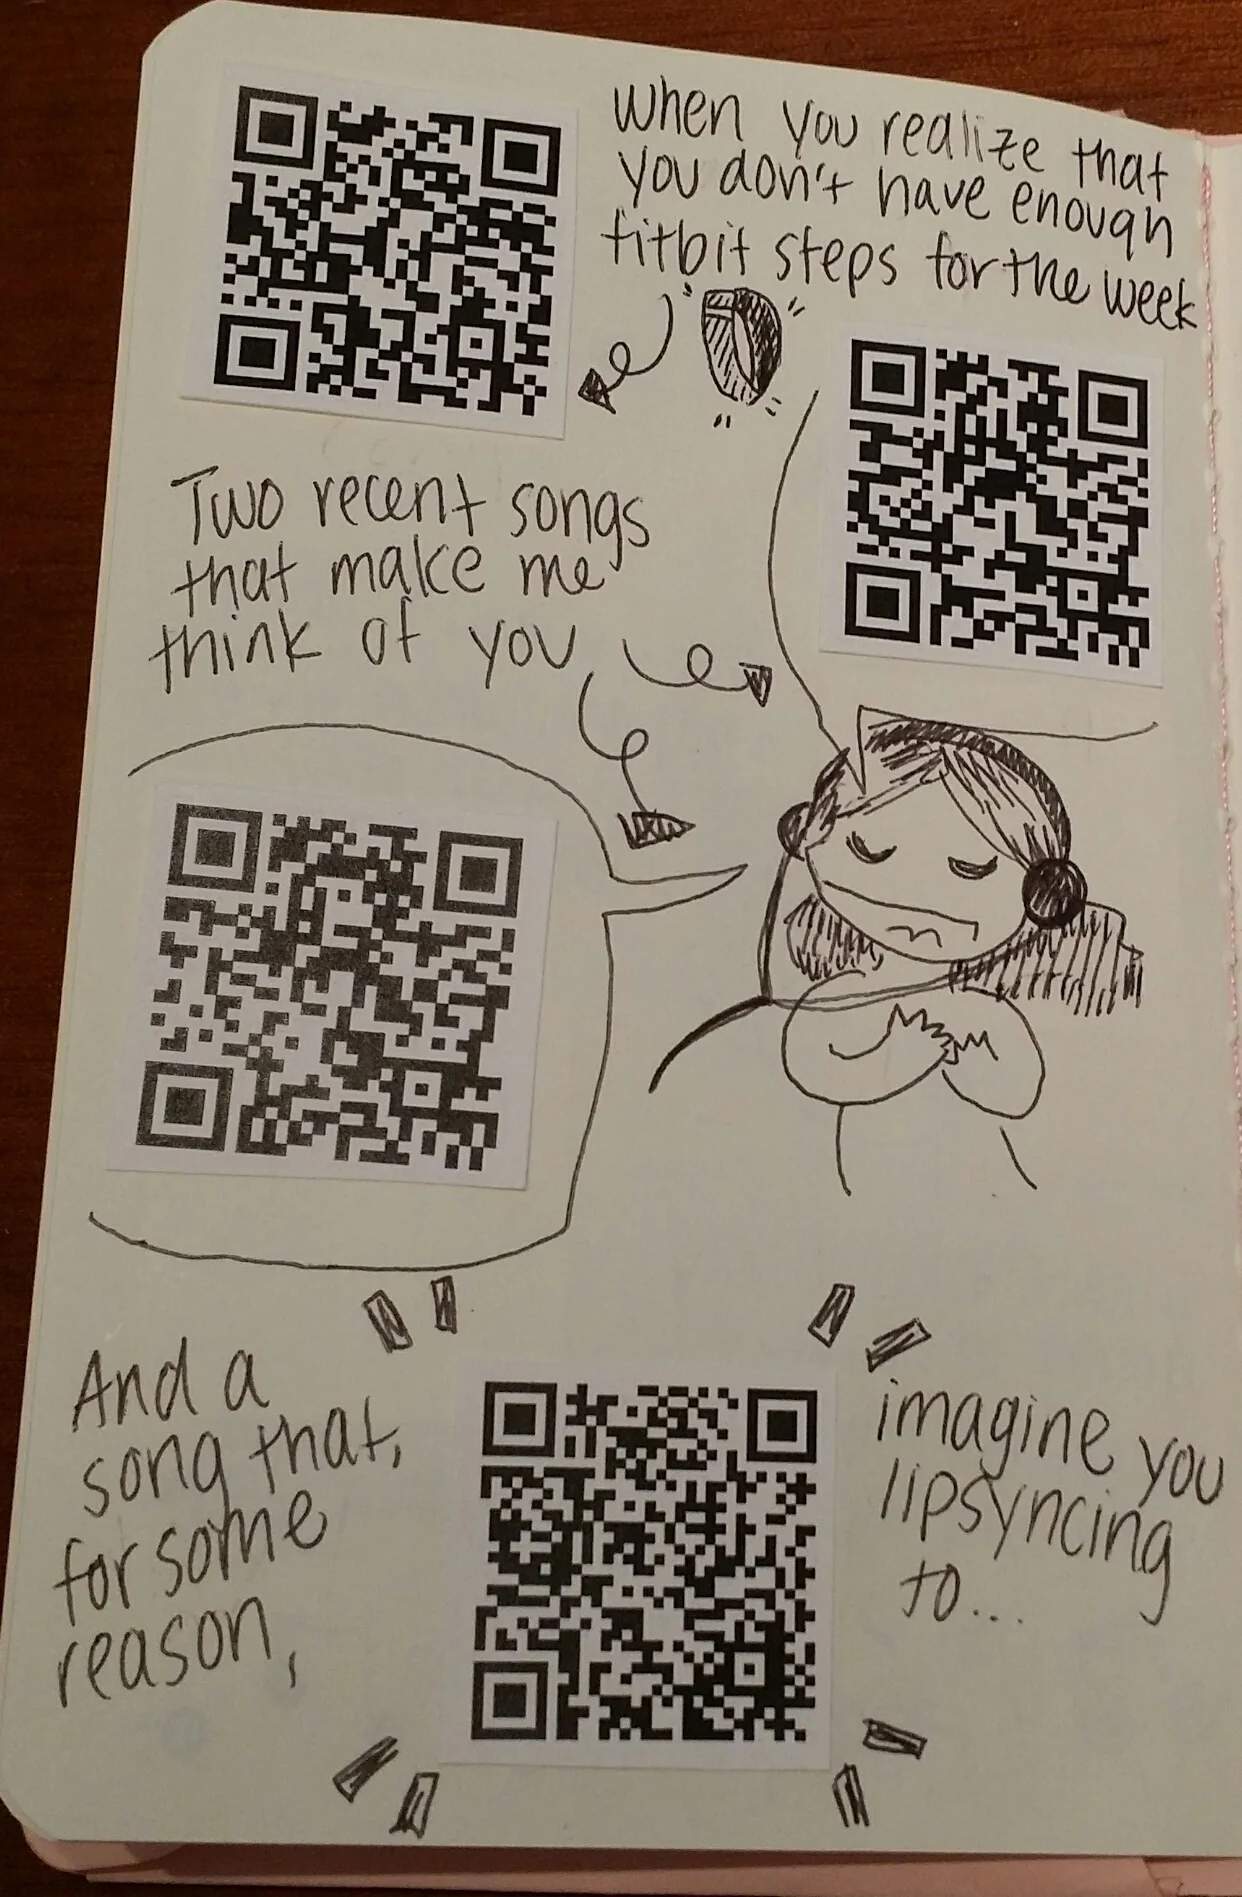 When you realize that
you don't have enough
fitbit steps for the week
Two recent songs
that make me
think of you
And a
song that,
for some
reason,
imagine you
lipsyncing
to...